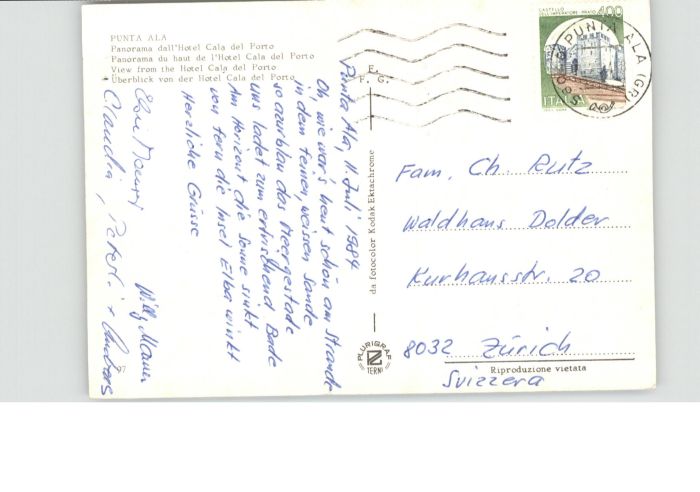 PUNTA ALA
Panorama dall'Hotel Cala del Porto
Panorama du haut de l'Hotel Cala del Porto
View from the Hotel Cala del Porto
Überblick von der Hotel Cala del Porto
F.
F. G.
Punta Ala, 11. Juli 1984
Oh, wie war's heut schön am Strande
in dem feinen, weissen Sande
so azurblau das Meergestade
uns ladet zum erfrischend Bade
Am Horizont die Sonne sinkt
von fern die Insel Elba winkt
Herzliche Grüsse
Willy Maurer
Claudia, Peter +
97
da fotocolor Kodak Ektachrome
PLURIGRAF
TERNI
CASTELLO
DELL'IMPERATORE - PRATO
400
ITALIA
PUNTA ALA (GR)
Fam. Ch. Rutz
Waldhaus Dolder
Kurhausstr. 20
8032 Zürich
Riproduzione vietata
Svizzera